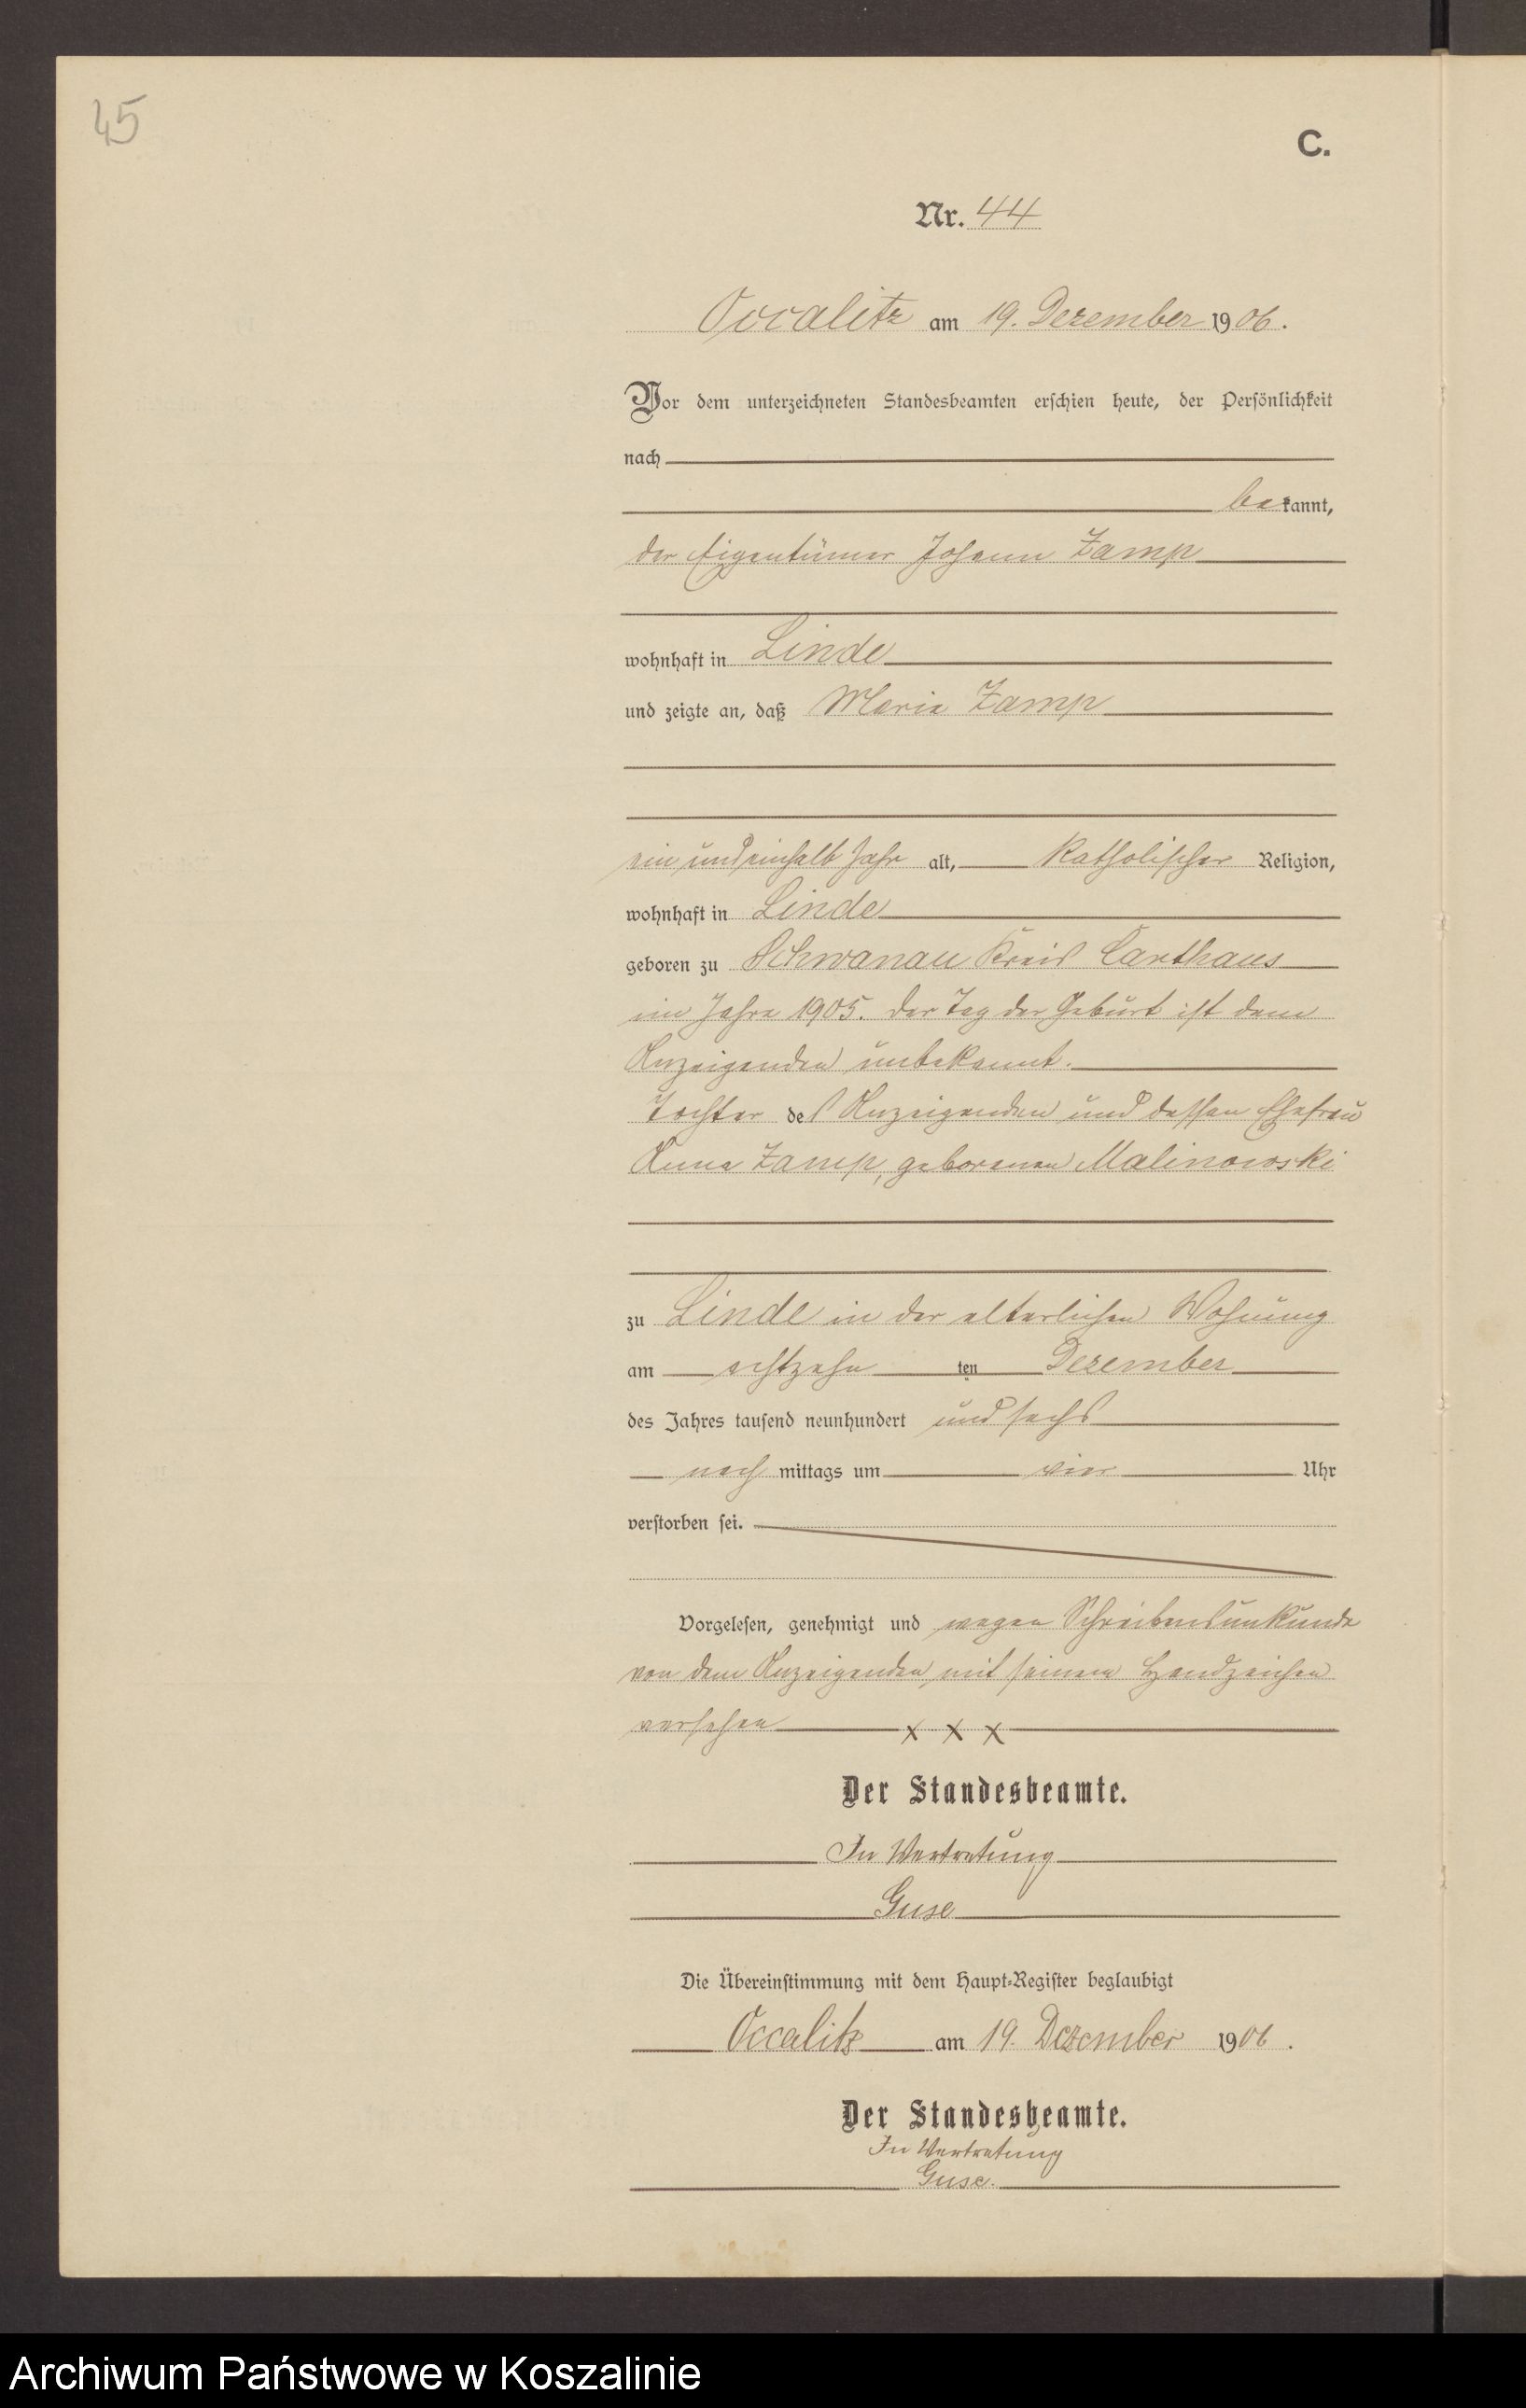 45
C.
Nr. 44
Occalitz am 19. Dezember 1906.
Vor dem unterzeichneten Standesbeamten erschien heute, der Persönlichkeit
nach
bekannt,
der Eigentümer Johann Zamp
wohnhaft in Linde
und zeigte an, daß Maria Zamp
ein und einhalb Jahr alt, katholischer Religion,
wohnhaft in Linde
geboren zu Schwanau Kreis Carthaus
im Jahre 1905. Der Tag der Geburt ist dem
Anzeigenden unbekannt.
Tochter des Anzeigenden und dessen Ehefrau
Anna Zamp, geborenen Malinowski
zu Linde in der elterlichen Wohnung
am achtzehn ten Dezember
des Jahres tausend neunhundert und sechs
nach mittags um vier Uhr
verstorben sei.
Vorgelesen, genehmigt und wegen Schreibensunkunde
von dem Anzeigenden mit seinem Handzeichen
versehen x x x
Der Standesbeamte.
In Vertretung
Guse
Die Übereinstimmung mit dem Haupt-Register beglaubigt
Occalitz am 19. Dezember 1906.
Der Standesbeamte.
In Vertretung
Guse.
Archiwum Państwowe w Koszalinie